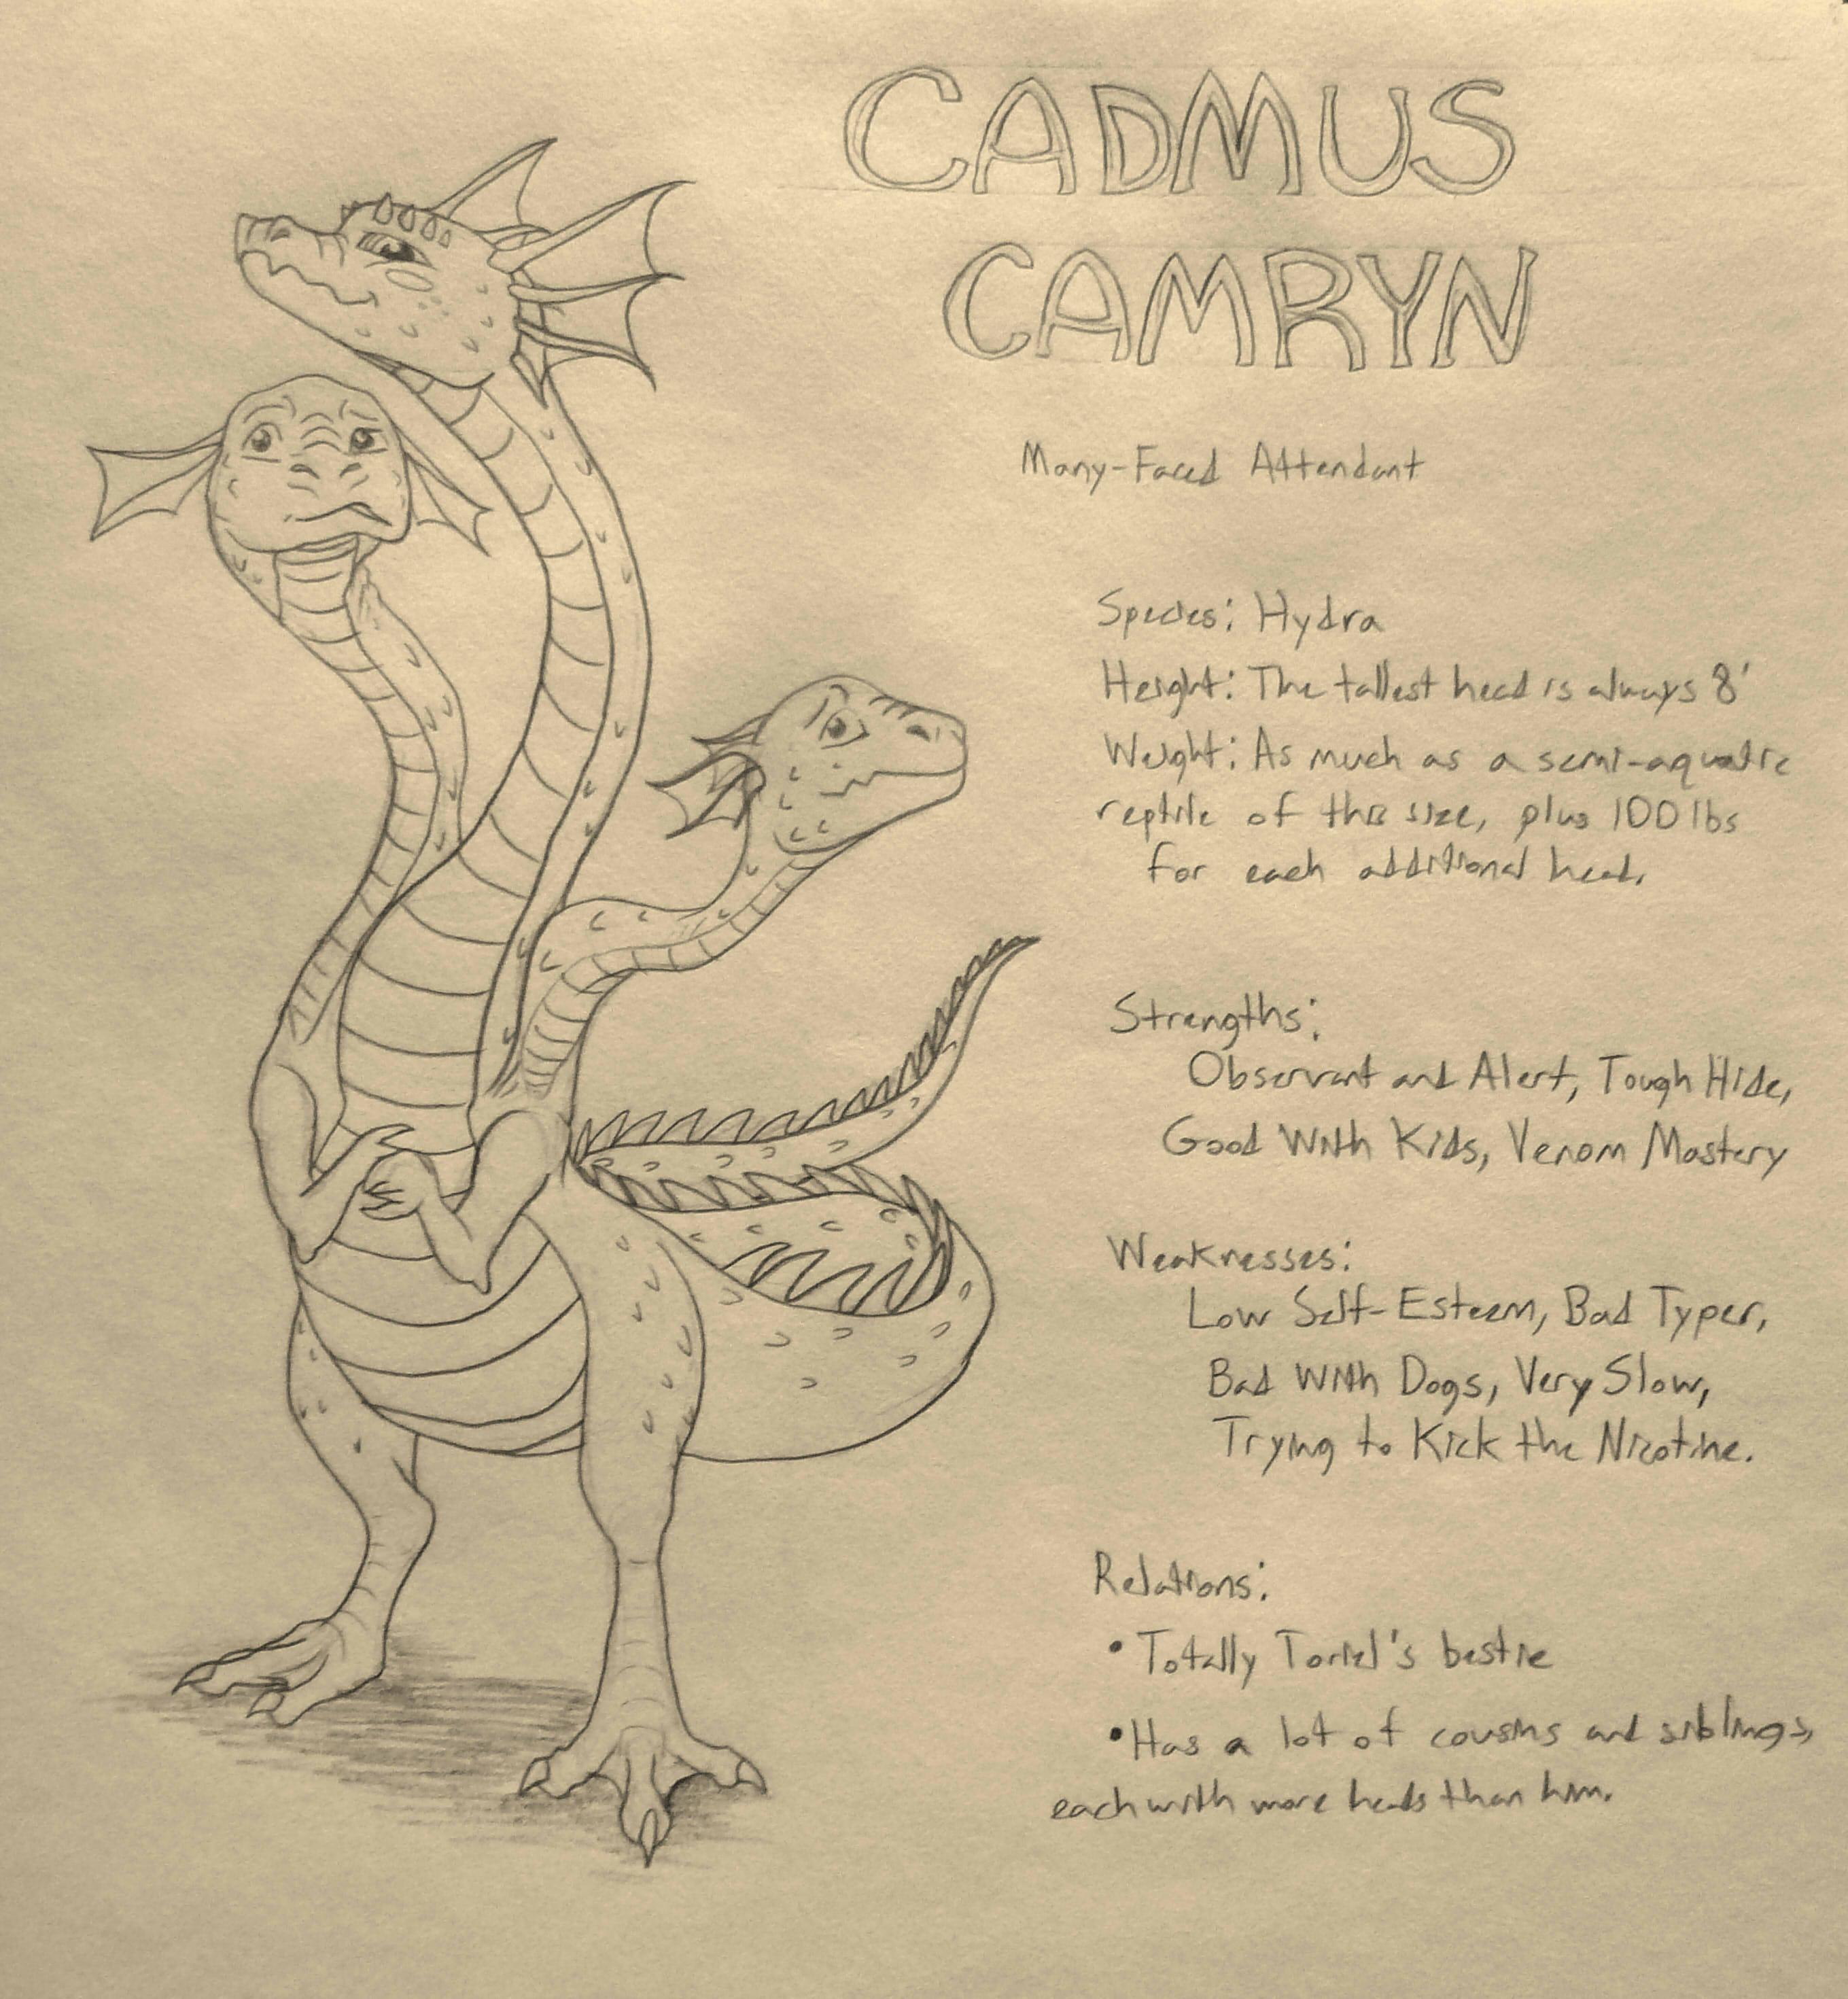 CADMUS
CAMRYN
Many-Faced Attendant
Species: Hydra
Height: The tallest head is always 8'
Weight: As much as a semi-aquatic
reptile of this size, plus 100 lbs
for each additional head.
Strengths:
Observant and Alert, Tough Hide,
Good With Kids, Venom Mastery
Weaknesses:
Low Self-Esteem, Bad Typer,
Bad With Dogs, Very Slow,
Trying to Kick the Nicotine.
Relations:
• Totally Toriel's bestie
• Has a lot of cousins and siblings,
each with more heads than him.